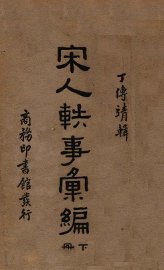 丁傳靖輯
宋人軼事彙編
下冊
商務印書館發行